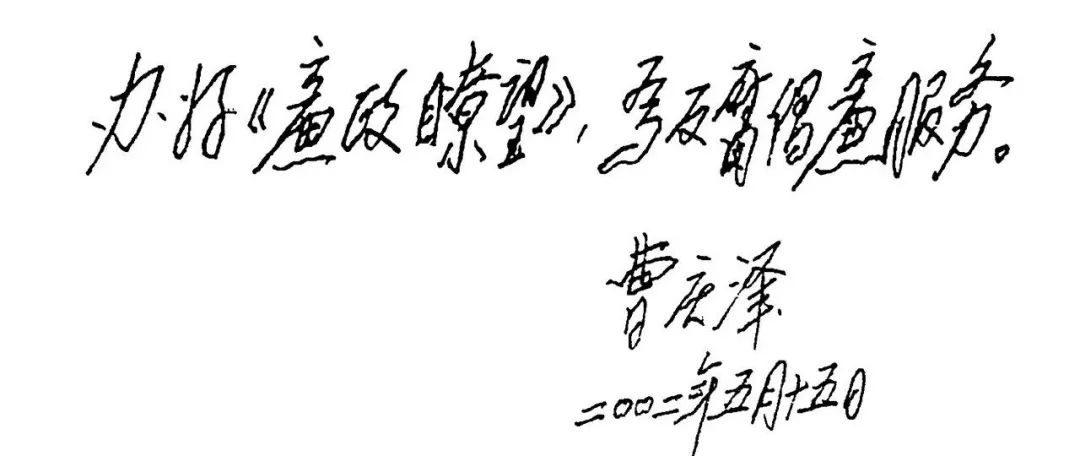 办好《廉政瞭望》，为反腐倡廉服务。
曹庆泽
二〇〇二年五月十五日